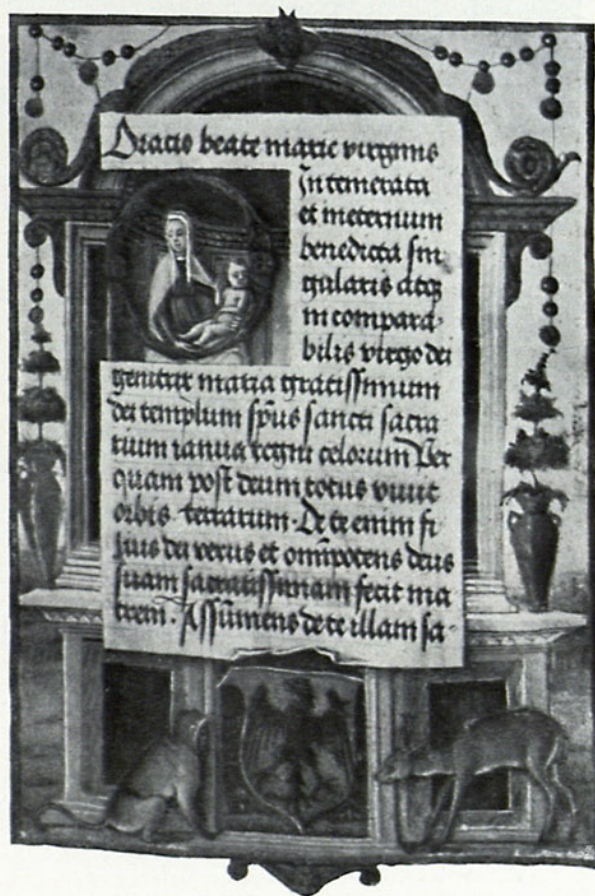 Oratio beate marie virginis
Intemerata
et ineternum
benedicta sin
gularis atq
incompara-
bilis virgo dei
genitrix maria gratissimum
dei templum spūs sancti sacra
rium ianua regni celorum Per
quam post deum totus vivit
orbis terrarum. De te enim fi
lius dei verus et omīpotens deus
suam sacratissimam fecit ma
trem. Assumens de te illam sa-